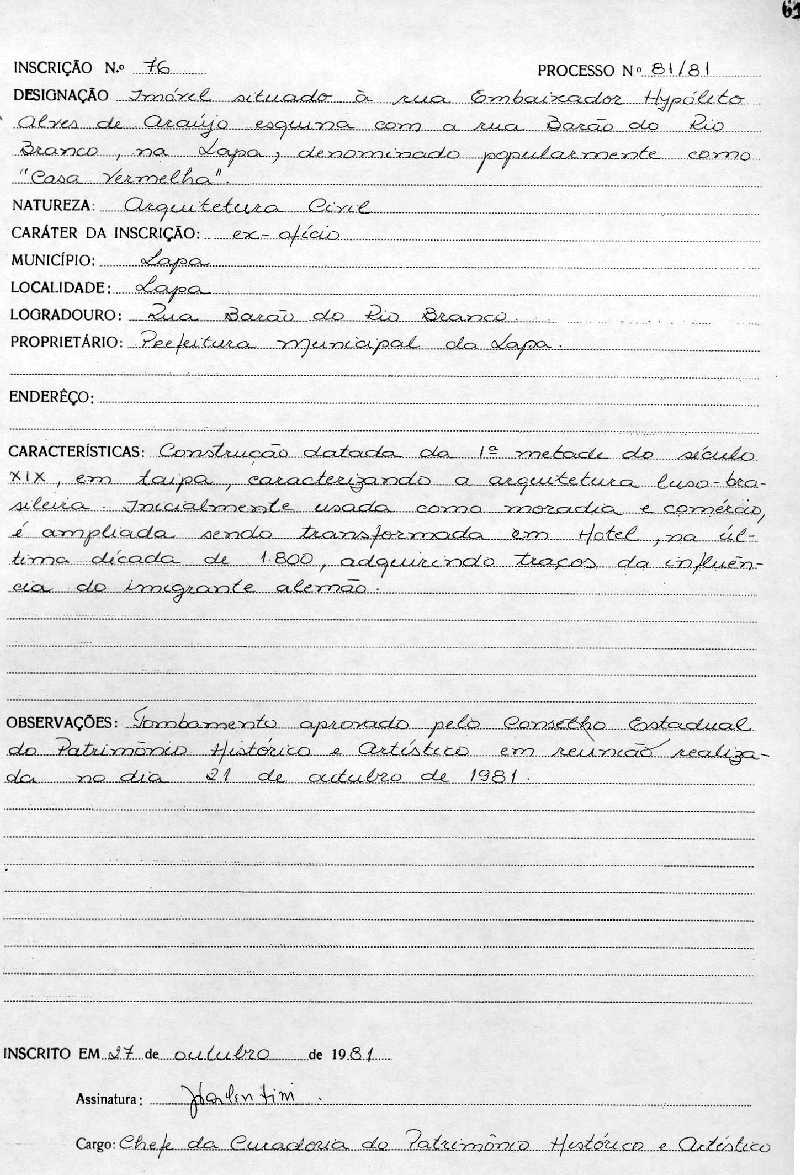 61
INSCRIÇÃO N.º 76 PROCESSO Nº 81/81
DESIGNAÇÃO Imóvel situado à rua Embaixador Hypólito
Alves de Araújo esquina com a rua Barão do Rio
Branco, na Lapa, denominado popularmente como
"Casa Vermelha".
NATUREZA: Arquitetura Civil
CARÁTER DA INSCRIÇÃO: ex-ofício
MUNICÍPIO: Lapa
LOCALIDADE: Lapa
LOGRADOURO: Rua Barão do Rio Branco.
PROPRIETÁRIO: Prefeitura Municipal da Lapa.
ENDERÊÇO:
CARACTERÍSTICAS: Construção datada da 1ª metade do século
XIX, em taipa, caracterizando a arquitetura luso-bra-
sileira. Inicialmente usada como moradia e comércio,
é ampliada sendo transformada em Hotel, na úl-
tima década de 1.800, adquirindo traços da influên-
cia do imigrante alemão.
OBSERVAÇÕES: Tombamento aprovado pelo Conselho Estadual
do Patrimônio Histórico e Artístico em reunião realiza-
da no dia 21 de outubro de 1981.
INSCRITO EM 27 de outubro de 1981
Assinatura:
Cargo: Chefe da Curadoria do Patrimônio Histórico e Artístico